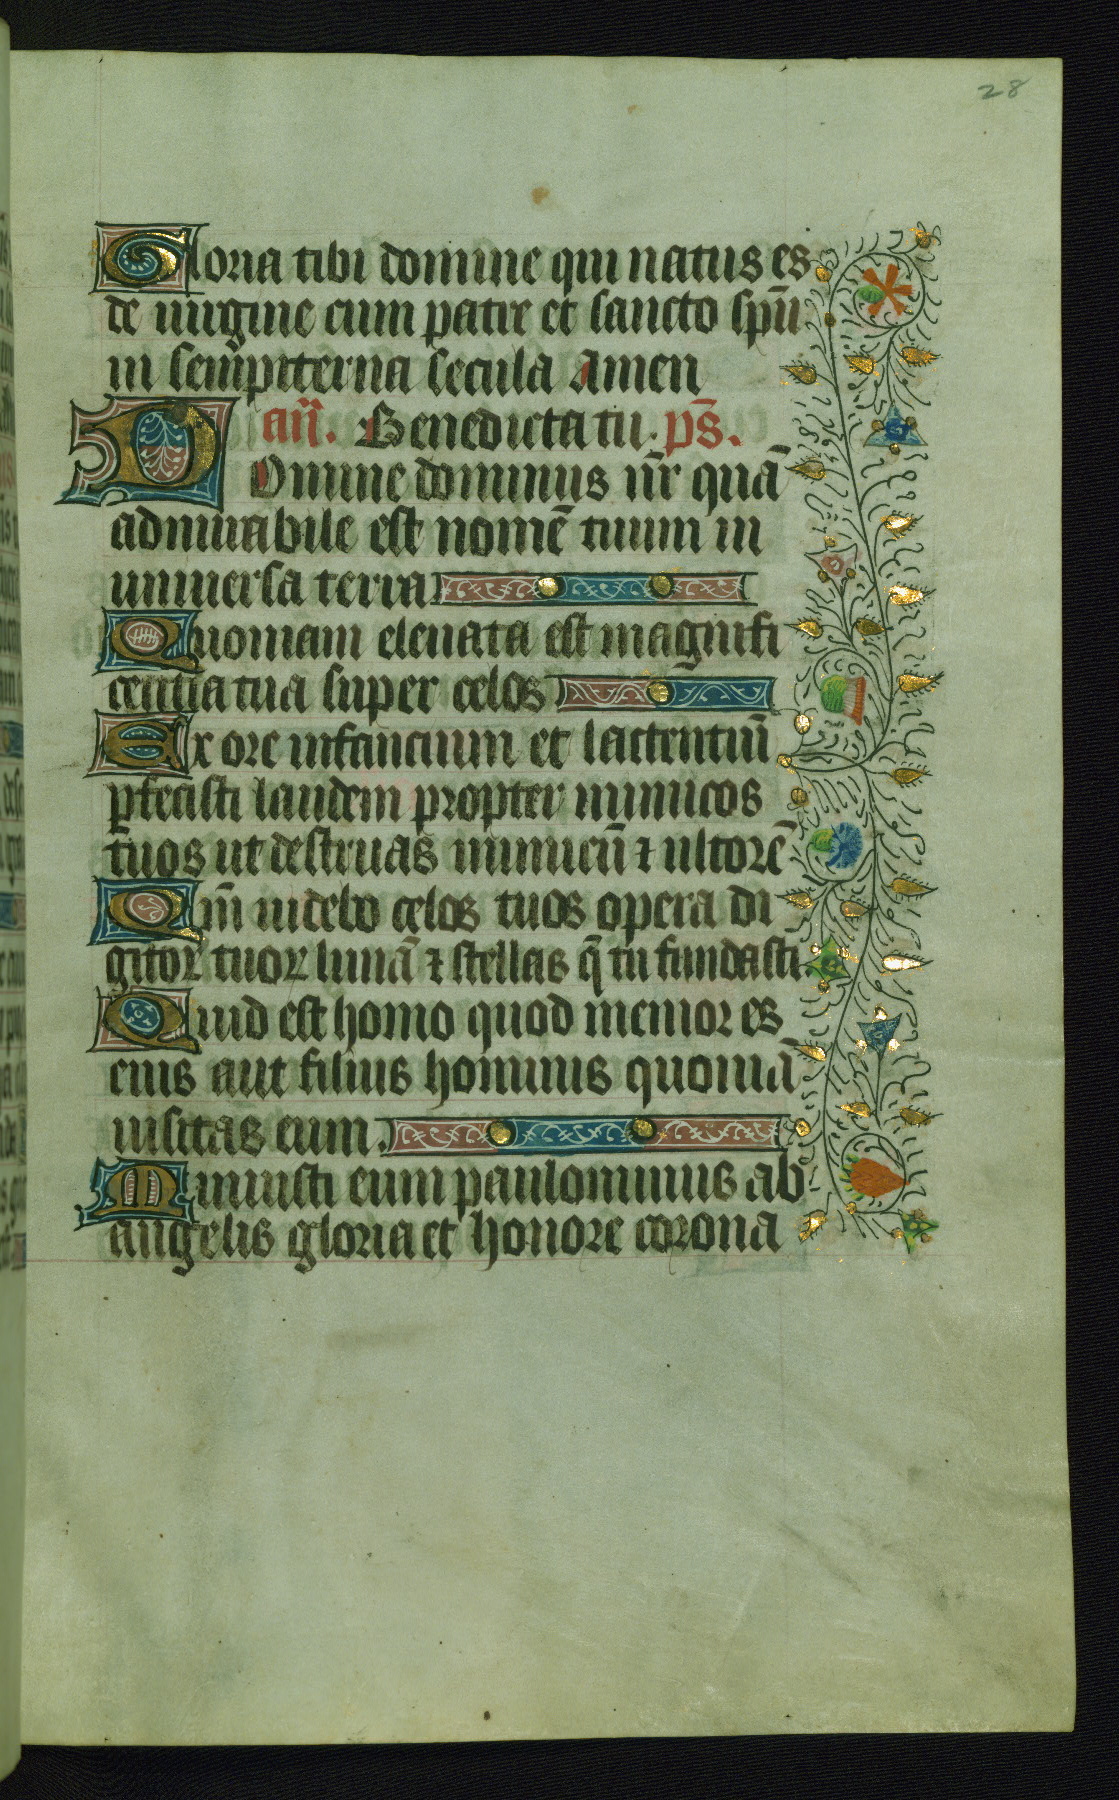 28
Gloria tibi domine qui natus es
de uirgine cum patre et sancto spũ
in sempiterna secula Amen
añ. Benedicta tu. ps̄.
DOmine dominus nr̄ quā
admirabile est nomē tuum in
uniuersa terra
Quoniam eleuata est magnifi
centia tua super celos
Ex ore infancium et lactentiū
ꝑfecisti laudem propter inimicos
tuos ut destruas inimicū ⁊ ultorē
Qm̄ uidebo celos tuos opera di
gitoꝝ tuoꝝ lunā ⁊ stellas q̄ tu fundasti
Quid est homo quod memor es
eius aut filius hominis quoniā
uisitas eum.
Minuisti eum paulominus ab
angelis gloria et honore corona